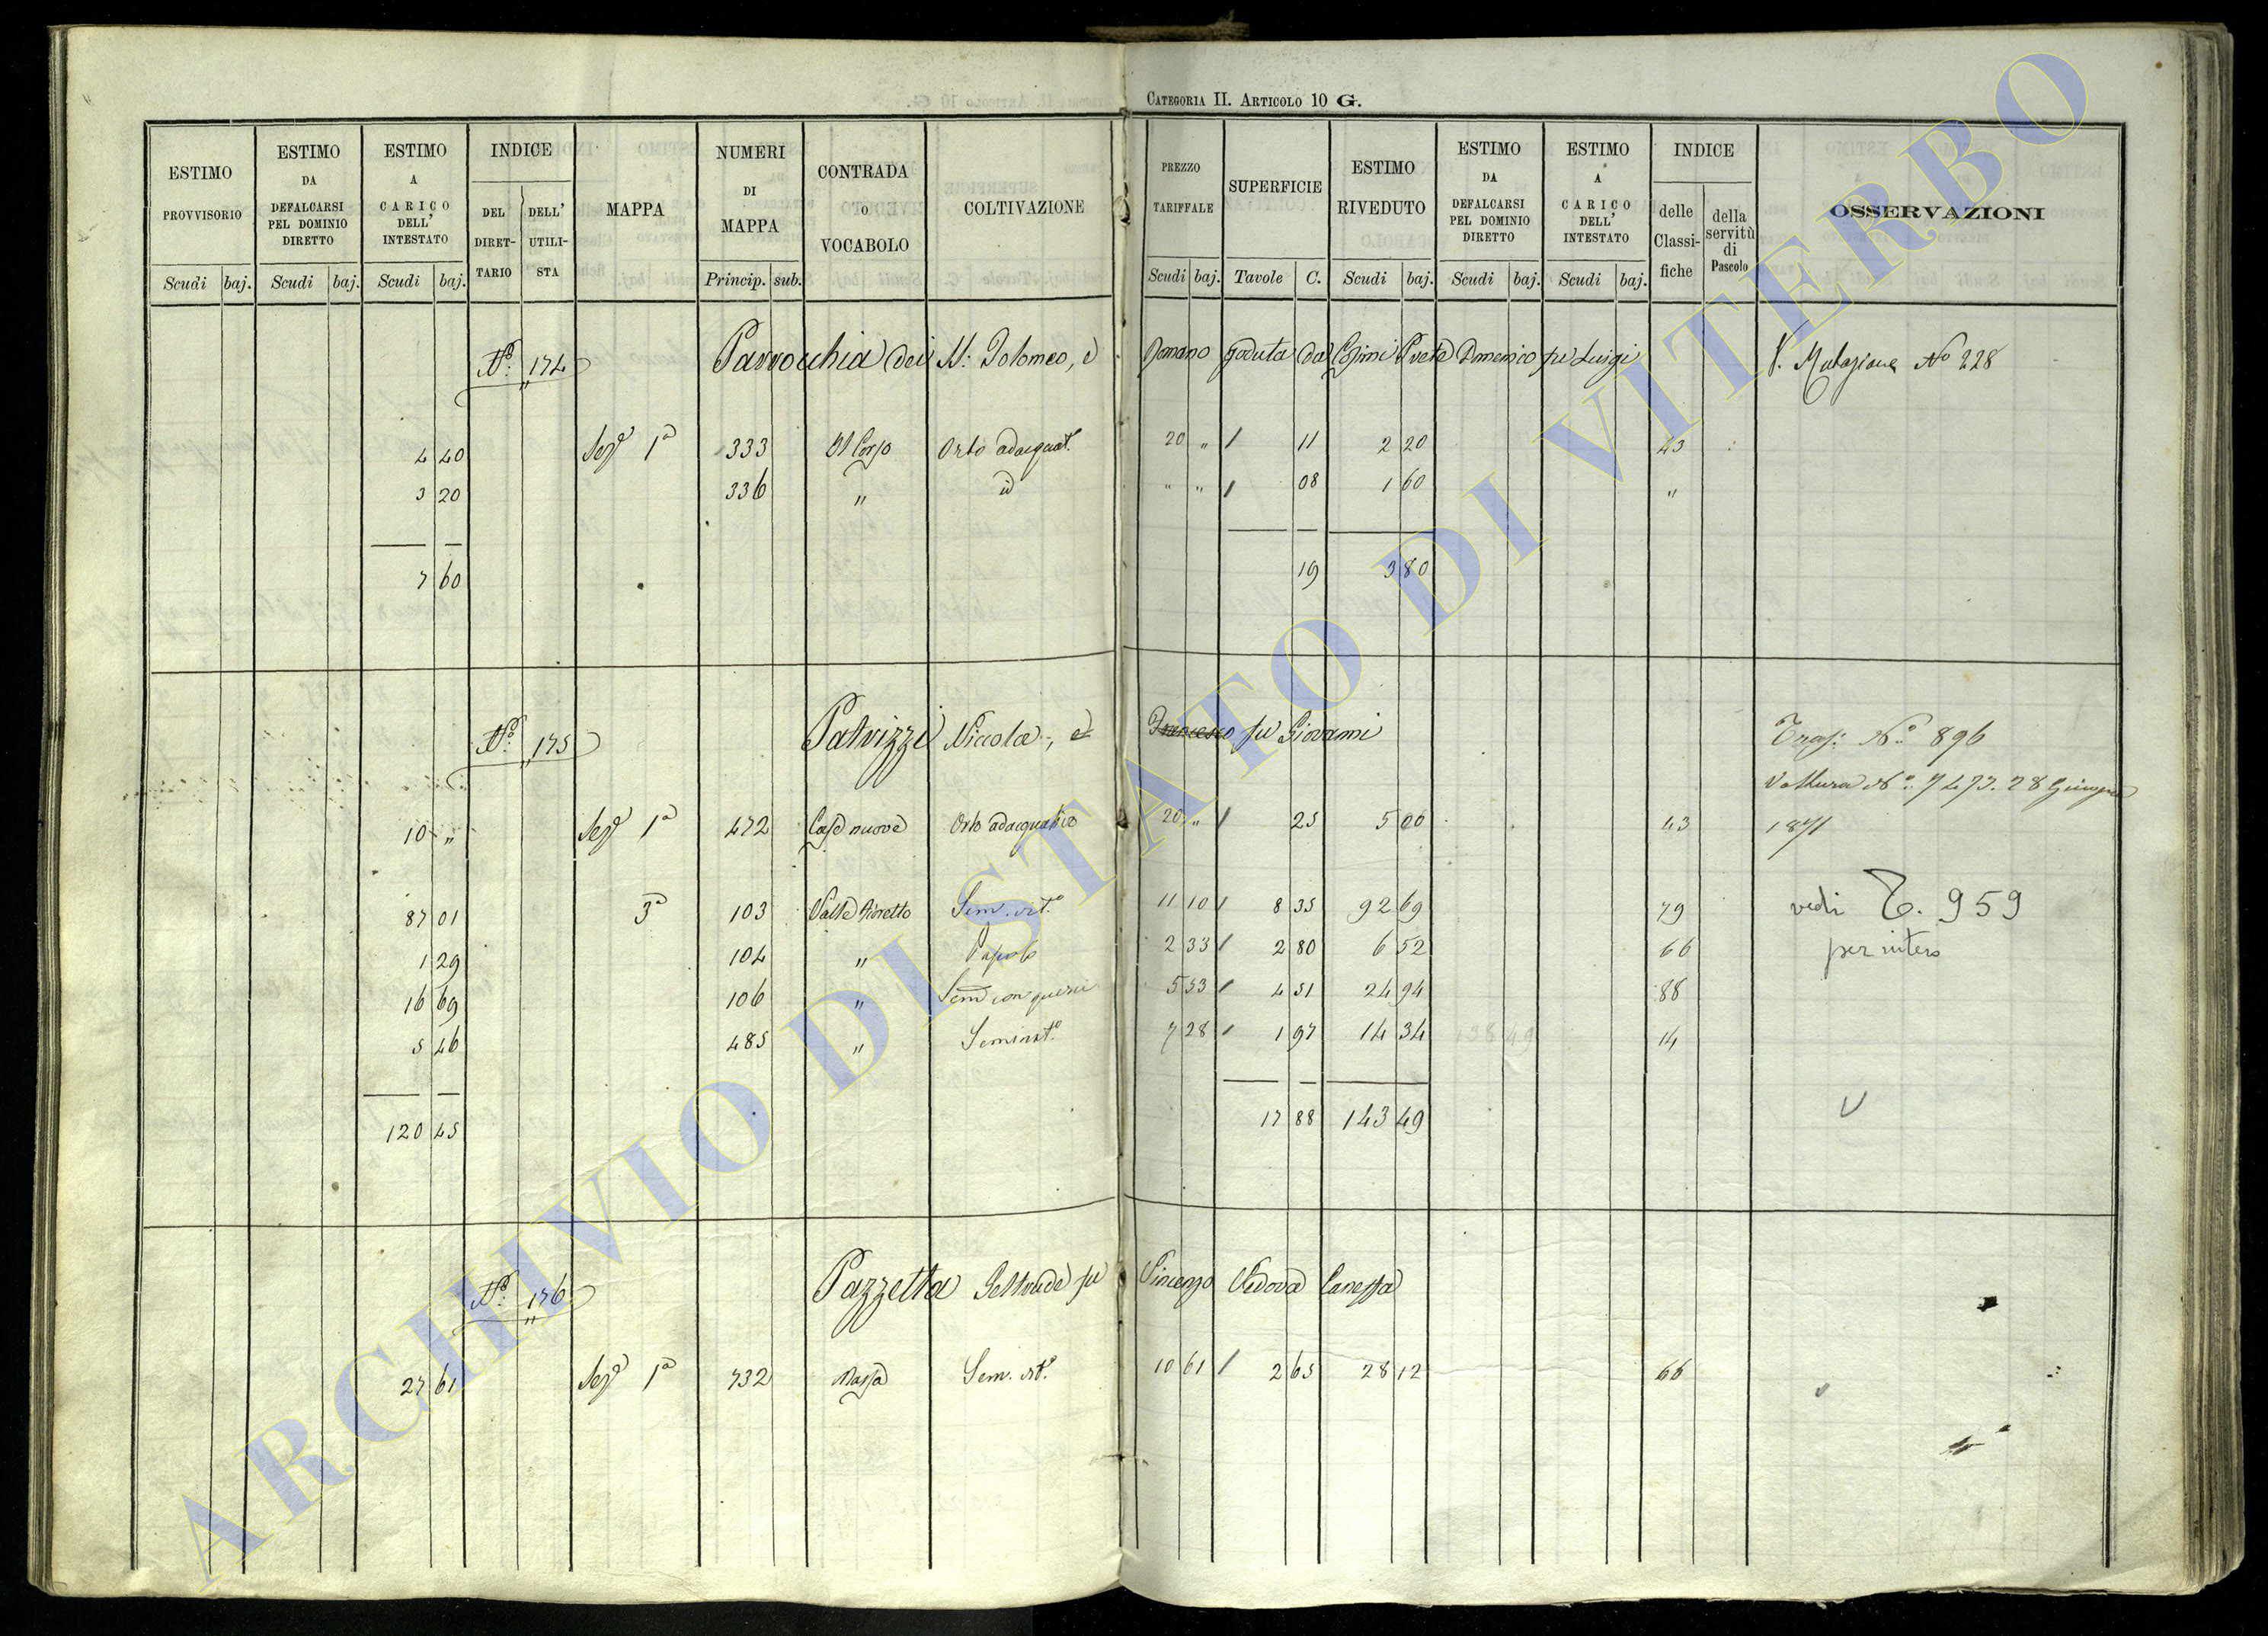 CATEGORIA II. ARTICOLO 10 G.
ESTIMO PROVVISORIO Scudi baj.
ESTIMO DA DEFALCARSI PEL DOMINIO DIRETTO Scudi baj.
ESTIMO A CARICO DELL' INTESTATO Scudi baj.
INDICE DEL DIRET- TARIO DELL' UTILI- STA
MAPPA
NUMERI DI MAPPA Princip. sub.
CONTRADA o VOCABOLO
COLTIVAZIONE
PREZZO TARIFFALE Scudi baj.
SUPERFICIE Tavole C.
ESTIMO RIVEDUTO Scudi baj.
ESTIMO DA DEFALCARSI PEL DOMINIO DIRETTO Scudi baj.
ESTIMO A CARICO DELL' INTESTATO Scudi baj.
INDICE delle Classi- fiche della servitù di Pascolo
OSSERVAZIONI
No. 174 Parrocchia dei SS. Tolomeo, e Romano goduta da Prete Domenico fu Luigi V. Mutazione No 228
4 40 Sezе 1a 333 Il Corso Orto adacquato. 20 " / 11 2 20 43
3 20 336 " id " " / 08 1 60 "
7 60 19 3 80
No. 175 Patrizzi Niccola, e Francesco fu Giovanni Trasp. No. 896
Voltura No. 7473. 28 Giugno
10 " Seze 1a 472 Case nuove Orto adacquativo 20 " / 25 5 00 43 1871
87 01 3a 103 Valle Sem. vito. 11 10 / 8 35 92 69 79 vedi T. 959
1 29 104 " Pascolo 2 33 / 2 80 6 52 66 per intero
16 69 106 " Sem con querci 5 53 / 4 51 24 94 88
5 46 485 " Seminato. 7 28 / 1 97 14 34 14
120 45 17 88 143 49
No. 176 Pazzetta Geltrude fu Vincenzo Vedova Canessa
27 61 Seze 1a 732 Massa Sem. vito. 10 61 / 2 65 28 12 66
ARCHIVIO DI STATO DI VITERBO